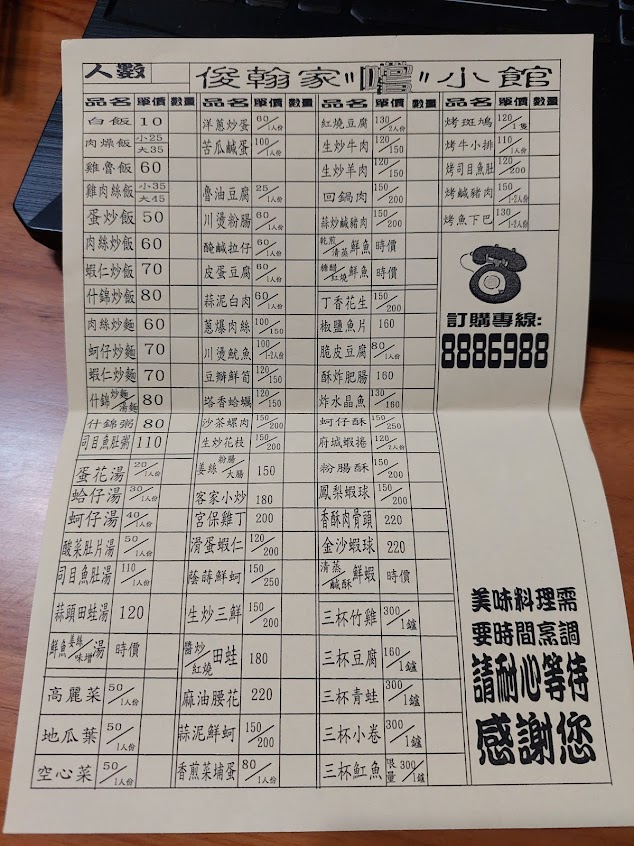 人數
俊翰家"嚐"小館
品名 單價 數量
白飯 10
肉燥飯 小25 大35
雞魯飯 60
雞肉絲飯 小35 大45
蛋炒飯 50
肉絲炒飯 60
蝦仁炒飯 70
什錦炒飯 80
肉絲炒麵 60
蚵仔炒麵 70
蝦仁炒麵 70
什錦炒麵/湯麵 80
什錦粥 80
司目魚肚粥 110
蛋花湯 20/1人份
蛤仔湯 30/1人份
蚵仔湯 40/1人份
酸菜肚片湯 50/1人份
司目魚肚湯 110/1人份
蒜頭田蛙湯 120
鮮魚薑絲/味增湯 時價
高麗菜 50/1人份
地瓜葉 50/1人份
空心菜 50/1人份
品名 單價 數量
洋蔥炒蛋 60/1人份
苦瓜鹹蛋 100/1人份
魯油豆腐 25/1人份
川燙粉腸 60/1人份
醃鹹拉仔 60/1人份
皮蛋豆腐 60/1人份
蒜泥白肉 60/1人份
蔥爆肉絲 100/150
川燙魷魚 100/1-2人份
豆瓣鮮筍 120/150
塔香蛤蠣 120/150
沙茶螺肉 150/200
生炒花枝 150/200
姜絲粉腸/大腸 150
客家小炒 180
宮保雞丁 200
滑蛋蝦仁 120/200
蔭蒜鮮蚵 150/250
生炒三鮮 150/200
醬炒/紅燒田蛙 180
麻油腰花 220
蒜泥鮮蚵 150/200
香煎菜埔蛋 80/1人份
品名 單價 數量
紅燒豆腐 130/2人份
生炒牛肉 120/150
生炒羊肉 120/150
回鍋肉 150/200
蒜炒鹹豬肉 150/200
乾煎/清蒸鮮魚 時價
糖醋/紅燒鮮魚 時價
丁香花生 150/200
椒鹽魚片 160
脆皮豆腐 80/1人份
酥炸肥腸 160
炸水晶魚 130/160
蚵仔酥 150/250
府城蝦捲 120/2人份
粉腸酥 150/200
鳳梨蝦球 150/200
香酥肉骨頭 220
金沙蝦球 220
清蒸/鹹酥鮮蝦 時價
三杯竹雞 300/1鑪
三杯豆腐 160/1鑪
三杯青蛙 300/1鑪
三杯小卷 300/1鑪
三杯魟魚 限量 300/1鑪
品名 單價 數量
烤斑鳩 120/1隻
烤牛小排 110/1人份
烤司目魚肚 120/200
烤鹹豬肉 150/1-2人份
烤魚下巴 130/1-2人份
訂購專線:
8886988
美味料理需
要時間烹調
請耐心等待
感謝您